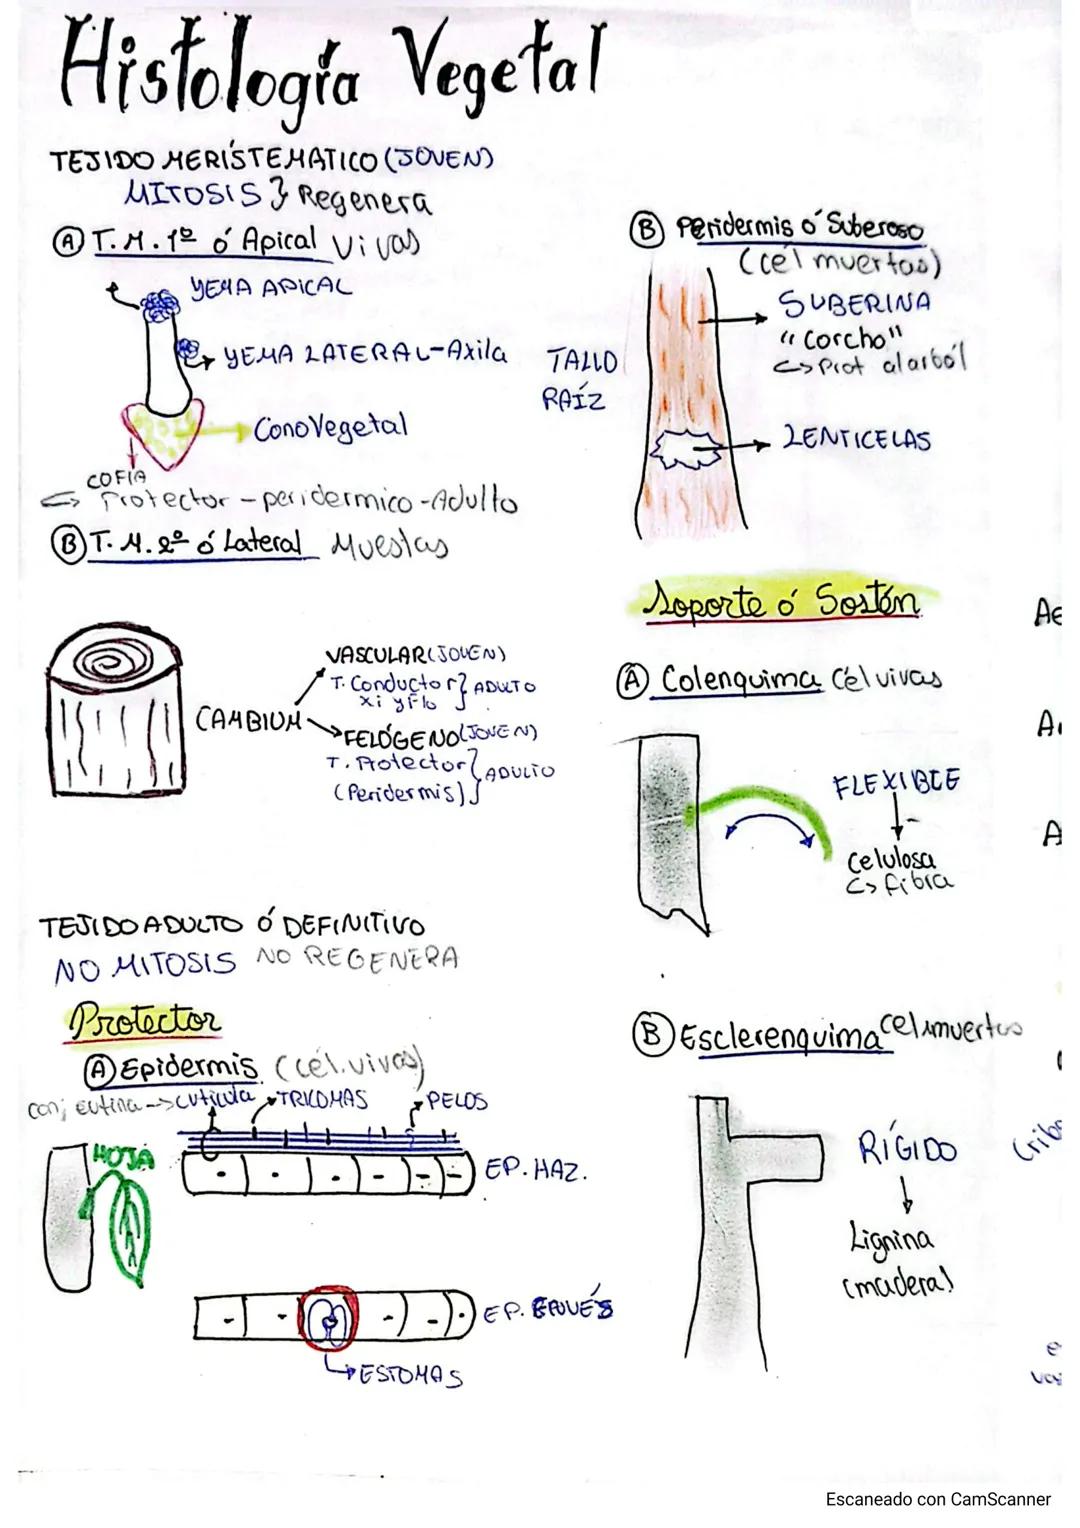 Histología Vegetal
TEJIDO MERÍSTEMATICO (JOVEN)
MITOSIS } Regenera
A T.M.1º ó Apical Vivas
YEMA APICAL
YEMA LATERAL-Axila
Cono Vegetal
COFIA
Protector - peridermico - Adulto
B T.M.2º ó Lateral Muestas
CAMBIUM
VASCULAR (JOVEN)
T. Conductor } ADULTO
Xi y Flo
FELÓGENO (JOVEN)
T. Protector } ADULTO
(Peridermis)
TEJIDO ADULTO Ó DEFINITIVO
NO MITOSIS NO REGENERA
Protector
A Epidermis (cél.vivas)
conj cutina -> cuticula TRICOMAS PELOS
HOJA
EP. HAZ.
EP. ENVÉS
ESTOMAS
B Peridermis ó Suberoso
(cél muertas)
SUBERINA
"corcho"
Prot al arból
TALLO
RAÍZ
LENTICELAS
Soporte ó Sostén
A Colenquima Cél vivas
FLEXIBLE
Celulosa
fibra
B Esclerenquima cel muertas
RÍGIDO
Lignina
(madera)
Ae
A
Criba
e
vas
Escaneado con CamScanner